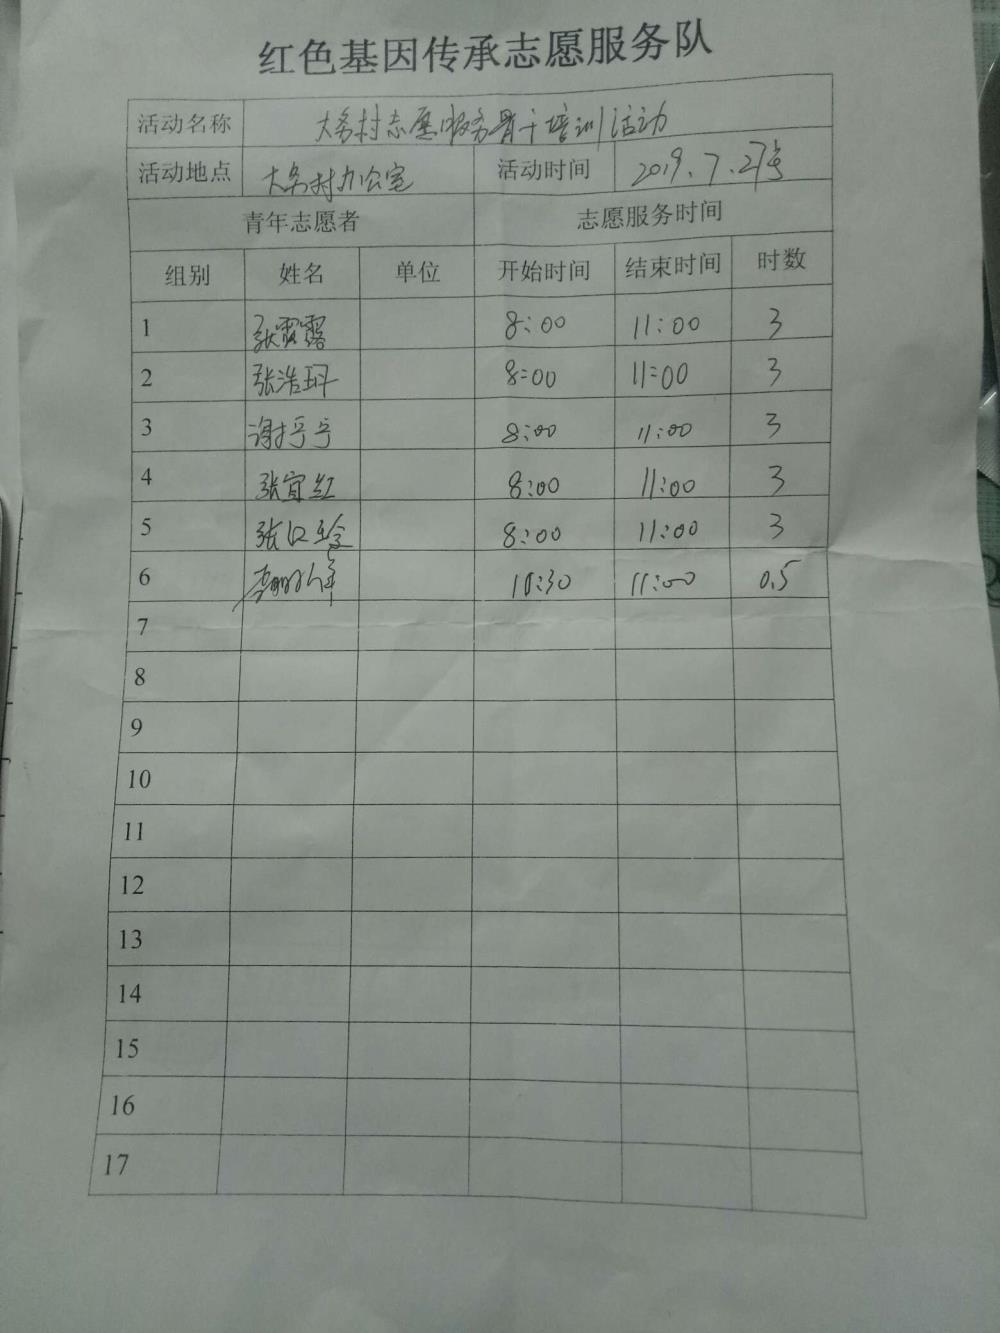 红色基因传承志愿服务队
活动名称 大务村志愿服务骨干培训活动
活动地点 大务村办公室 活动时间 2019.7.27号
青年志愿者 志愿服务时间
组别 姓名 单位 开始时间 结束时间 时数
1 张露露 8:00 11:00 3
2 张浩珂 8:00 11:00 3
3 谢婷婷 8:00 11:00 3
4 张宜红 8:00 11:00 3
5 张 8:00 11:00 3
6 10:30 11:00 0.5
7
8
9
10
11
12
13
14
15
16
17